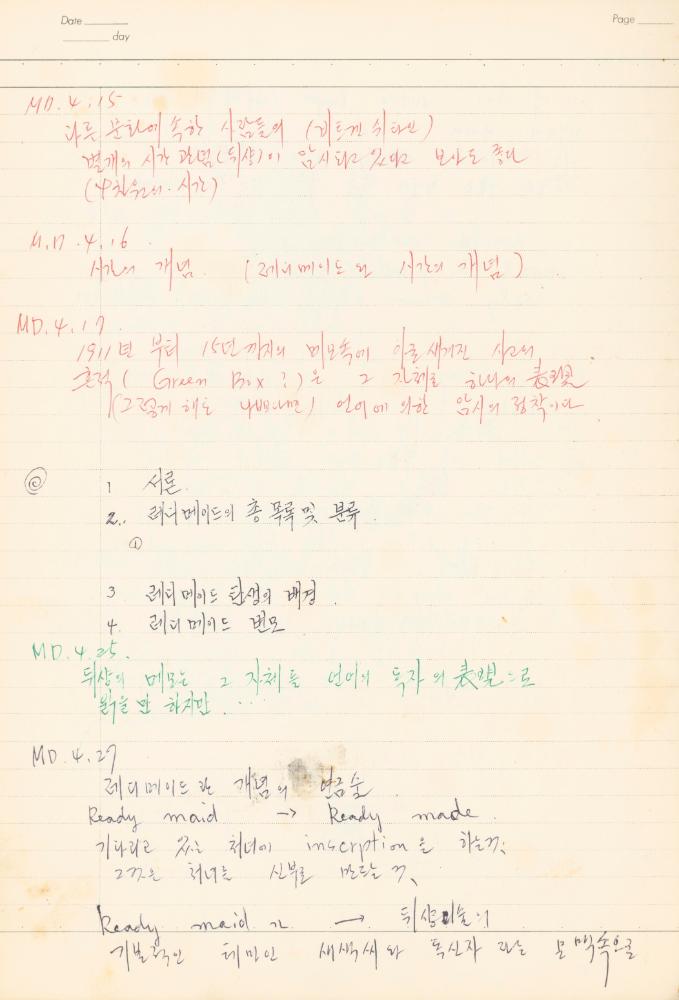 Date
Page
day
MD. 4. 15
다른 문화에 속한 사람들의 (비트겐쉬타인)
별개의 시간관념(뒤샹)이 암시되고 있다고 보아도 좋다
(4차원의 시간)
M.D. 4. 16
시간의 개념. (레디메이드와 시간의 개념)
MD. 4. 17.
1911년 부터 15년까지의 메모속에 아로새겨진 사고의
흔적 (Green Box?)은 그 자체로 하나의 表現
(그렇게 해도 나쁘다면) 언어에 의한 암시의 정착이다
ⓒ 1 서론.
2. 레디메이드의 총 목록 및 분류
①
3 레디메이드 탄생의 배경.
4. 레디메이드 변모
MD. 4. 25.
뒤샹의 메모는 그 자체를 언어의 독자의 表現으로
읽을 만 하지만. ...
MD. 4. 27
레디메이드란 개념의 연금술.
Ready maid → Ready made.
기다리고 있는 처녀에 inscrption을 하는것,
그것은 처녀를 신부로 만드는 것,
Ready maid가 → 뒤샹미술의
기본적인 테마인 새색씨와 독신자 라는 문맥속으로